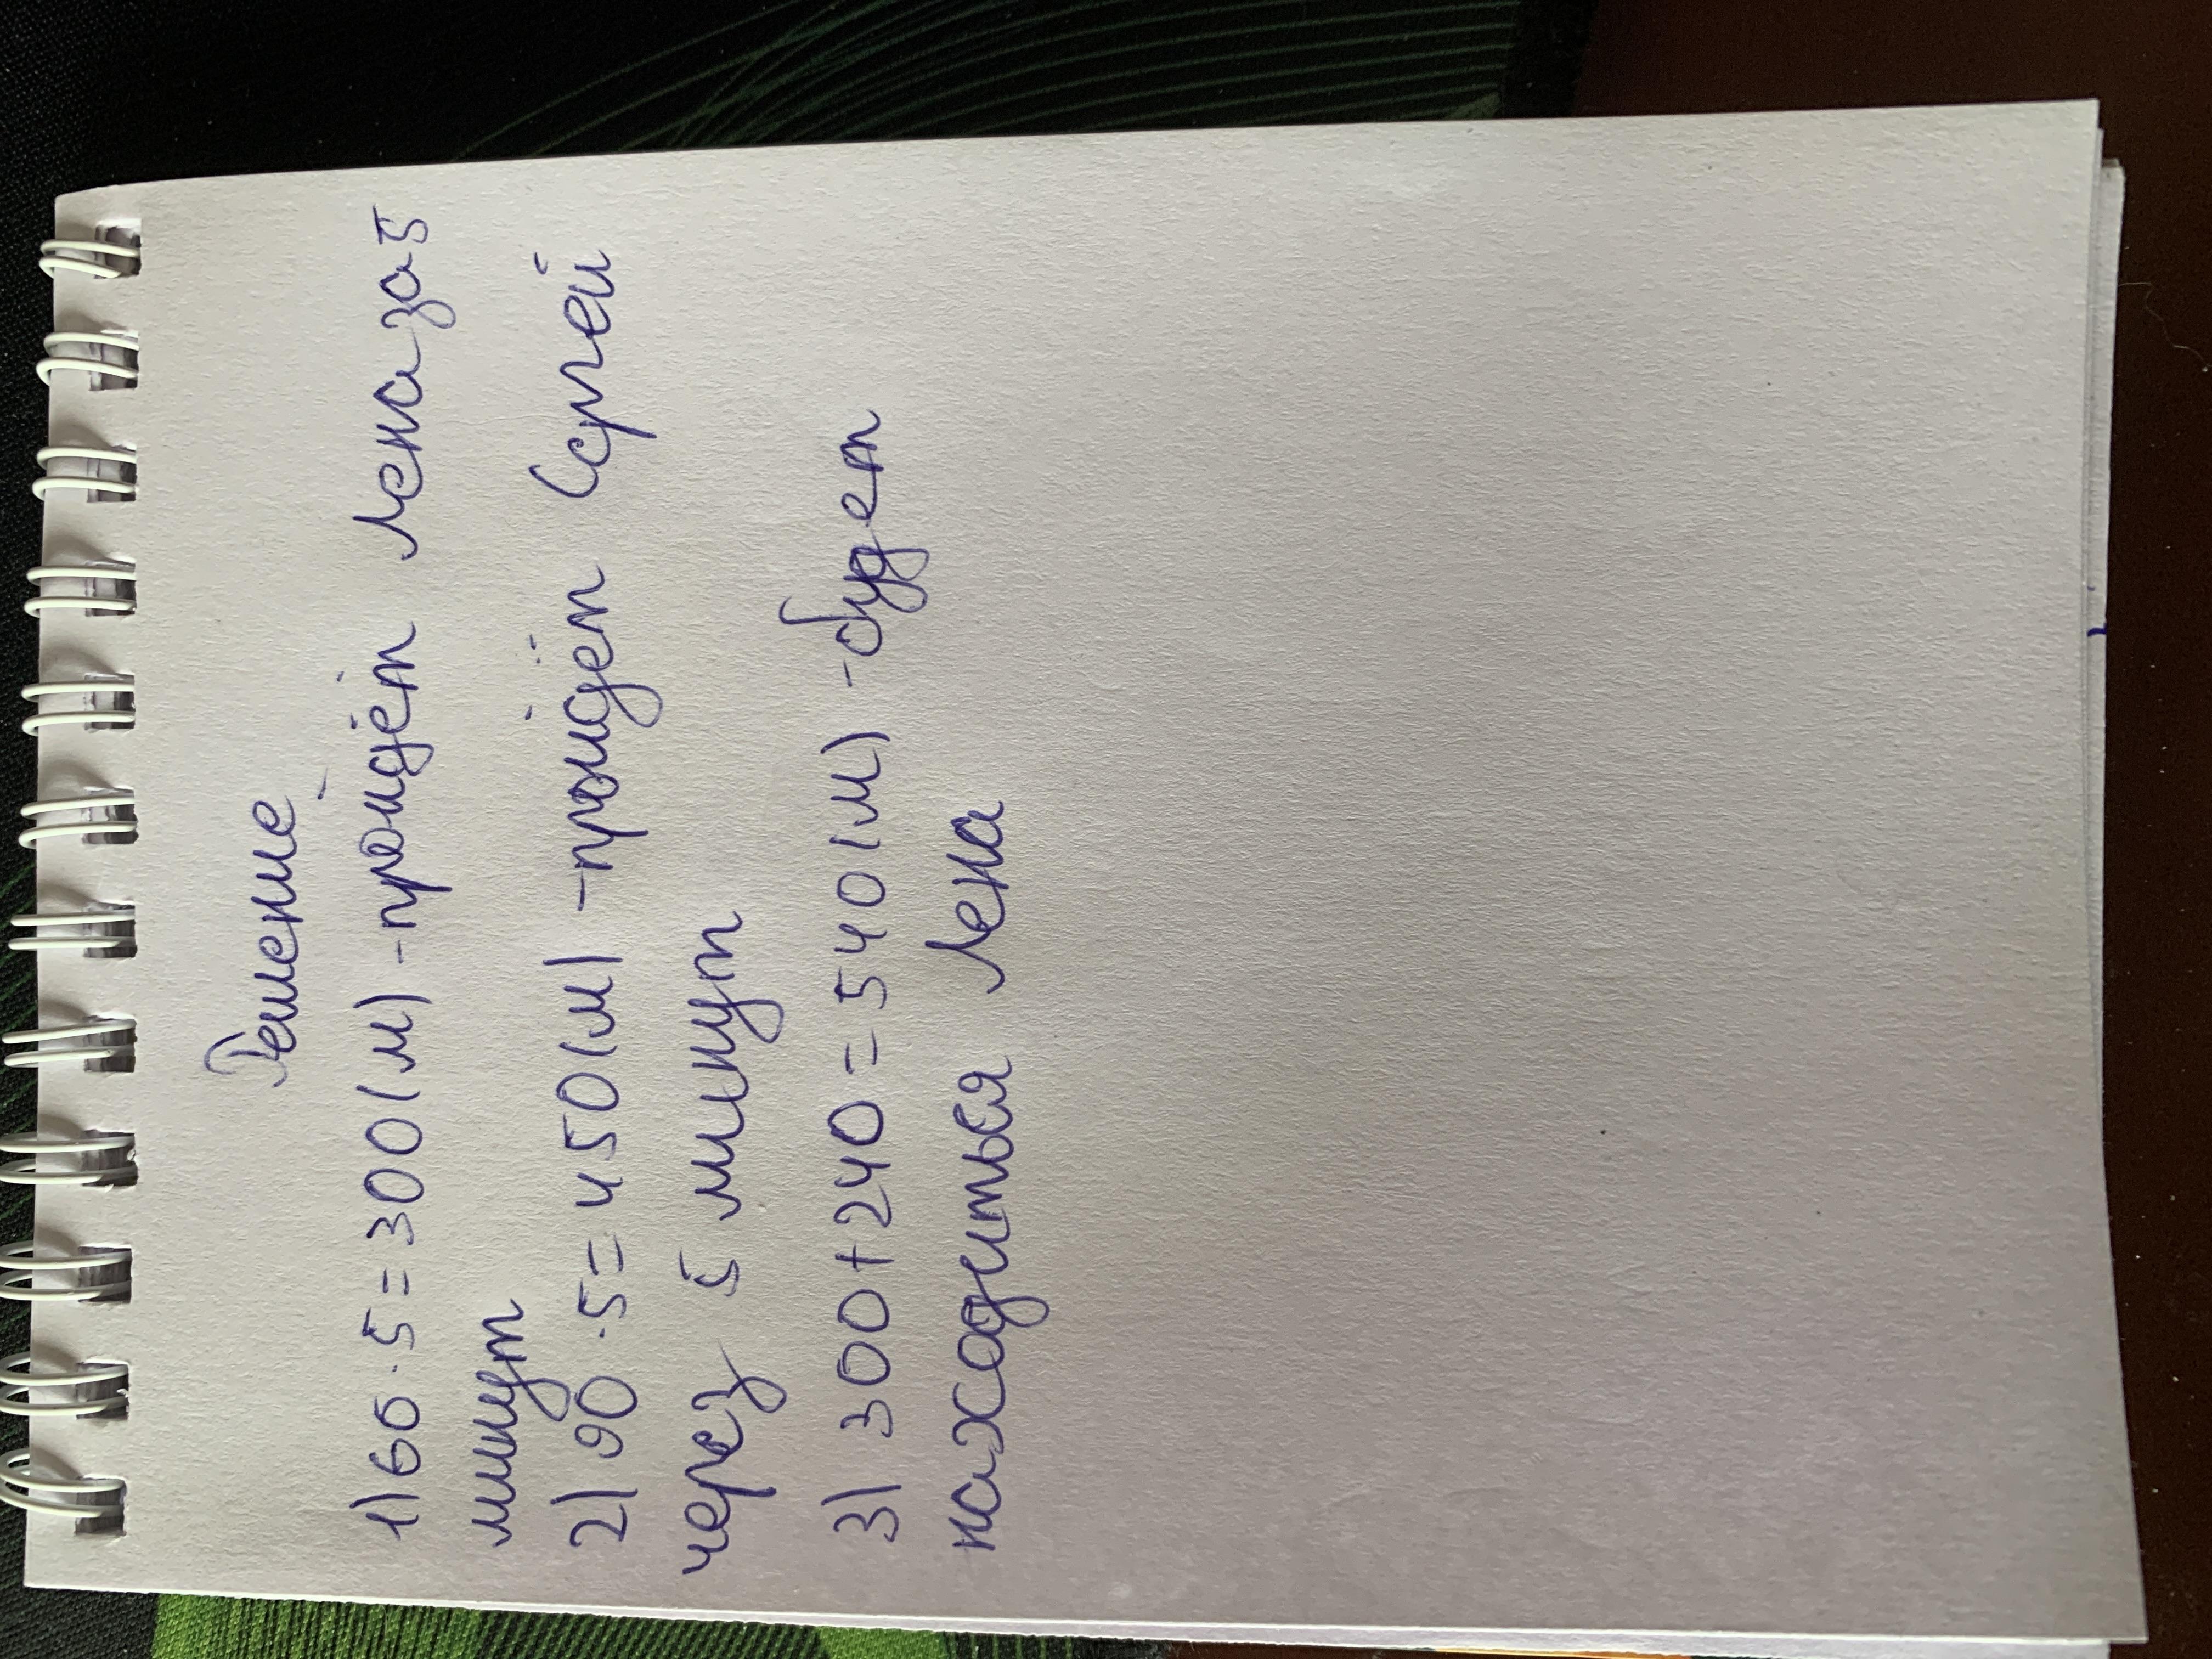 Решение
1) 60 · 5 = 300 (м) - пройдём Лена за 5
минут
2) 90 · 5 = 450 (м) - пройдём Сергей
через 5 минут
3) 300 + 240 = 540 (м) - будет
находиться Лена